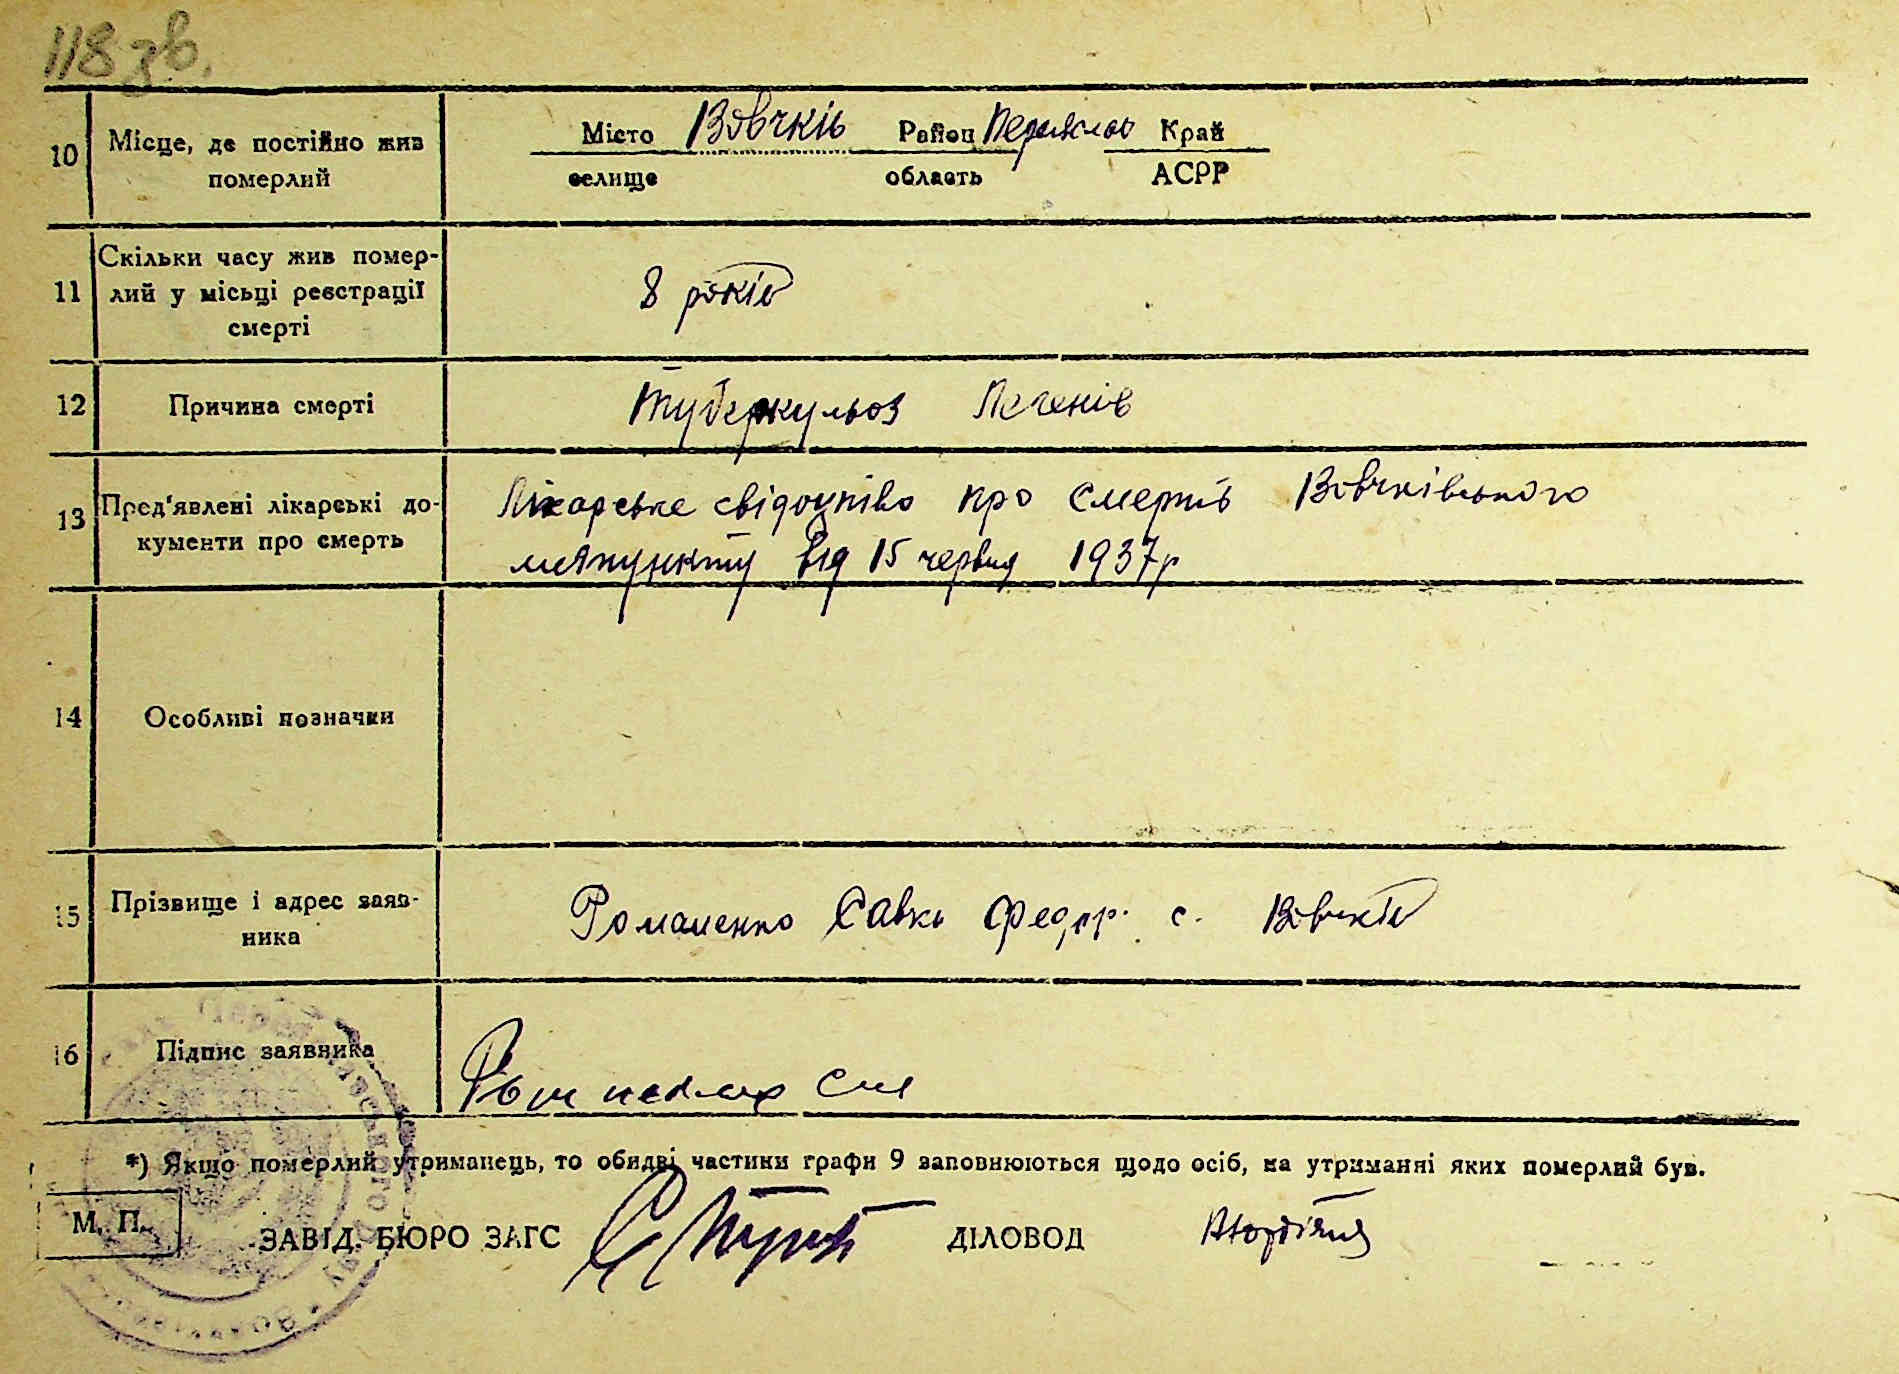 118 зв.
10 Місце, де постійно жив померлий
Місто Вовчків Район Переяслав Край
селище область АСРР
11 Скільки часу жив помер-
лий у місьці реєстрації
смерті
8 років
12 Причина смерті
Туберкульоз Легенів
13 Пред'явлені лікарські до-
кументи про смерть
Лікарське свідоцтво про смерть Вовчківського
медпункту від 15 червня 1937 р
14 Особливі позначки
15 Прізвище і адрес заяв-
ника
Романенко Савка Федор. с. Вовчків
16 Підпис заявника
*) Якщо померлий утриманець, то обидві частини графи 9 заповнюються щодо осіб, на утриманні яких померлий був.
М. П.
ЗАВІД. БЮРО ЗАГС ДІЛОВОД